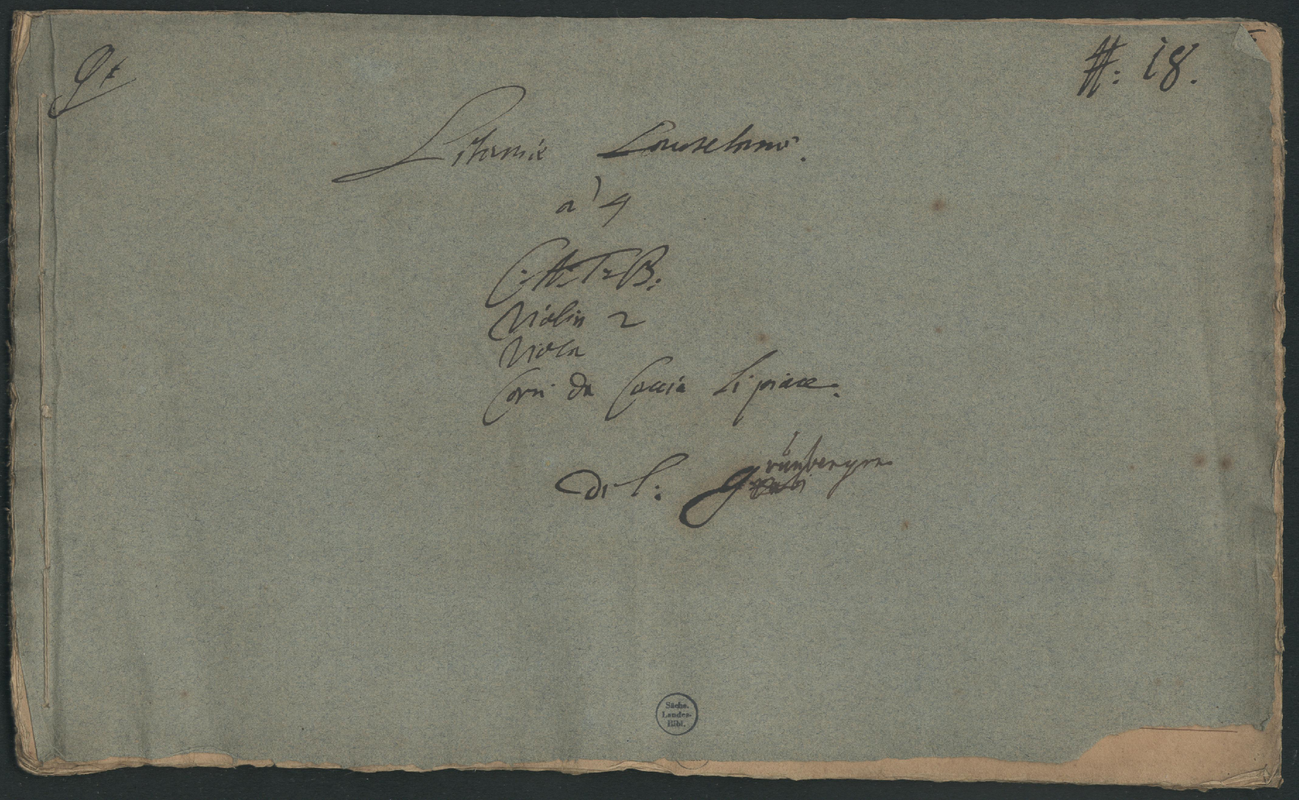 N: 18.
Litaniæ Lauretanæ.
a' 4
C: A: T: B:
Violin 2
Viola
Corni da Caccia si piace.
Di S:
Sächs.
Landes-
Bibl.